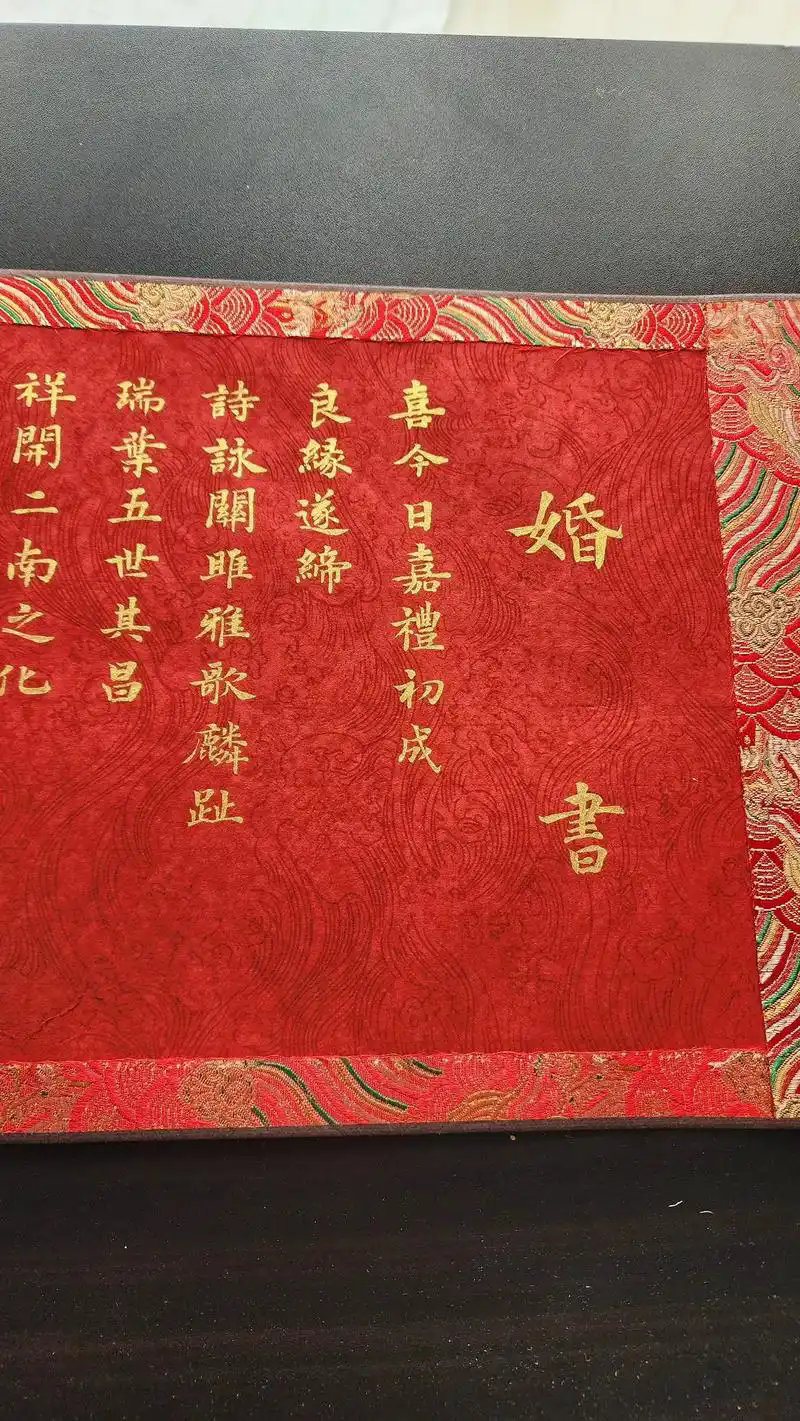 婚書
喜今日嘉禮初成
良緣遂締
詩詠關雎雅歌麟趾
瑞葉五世其昌
祥開二南之化